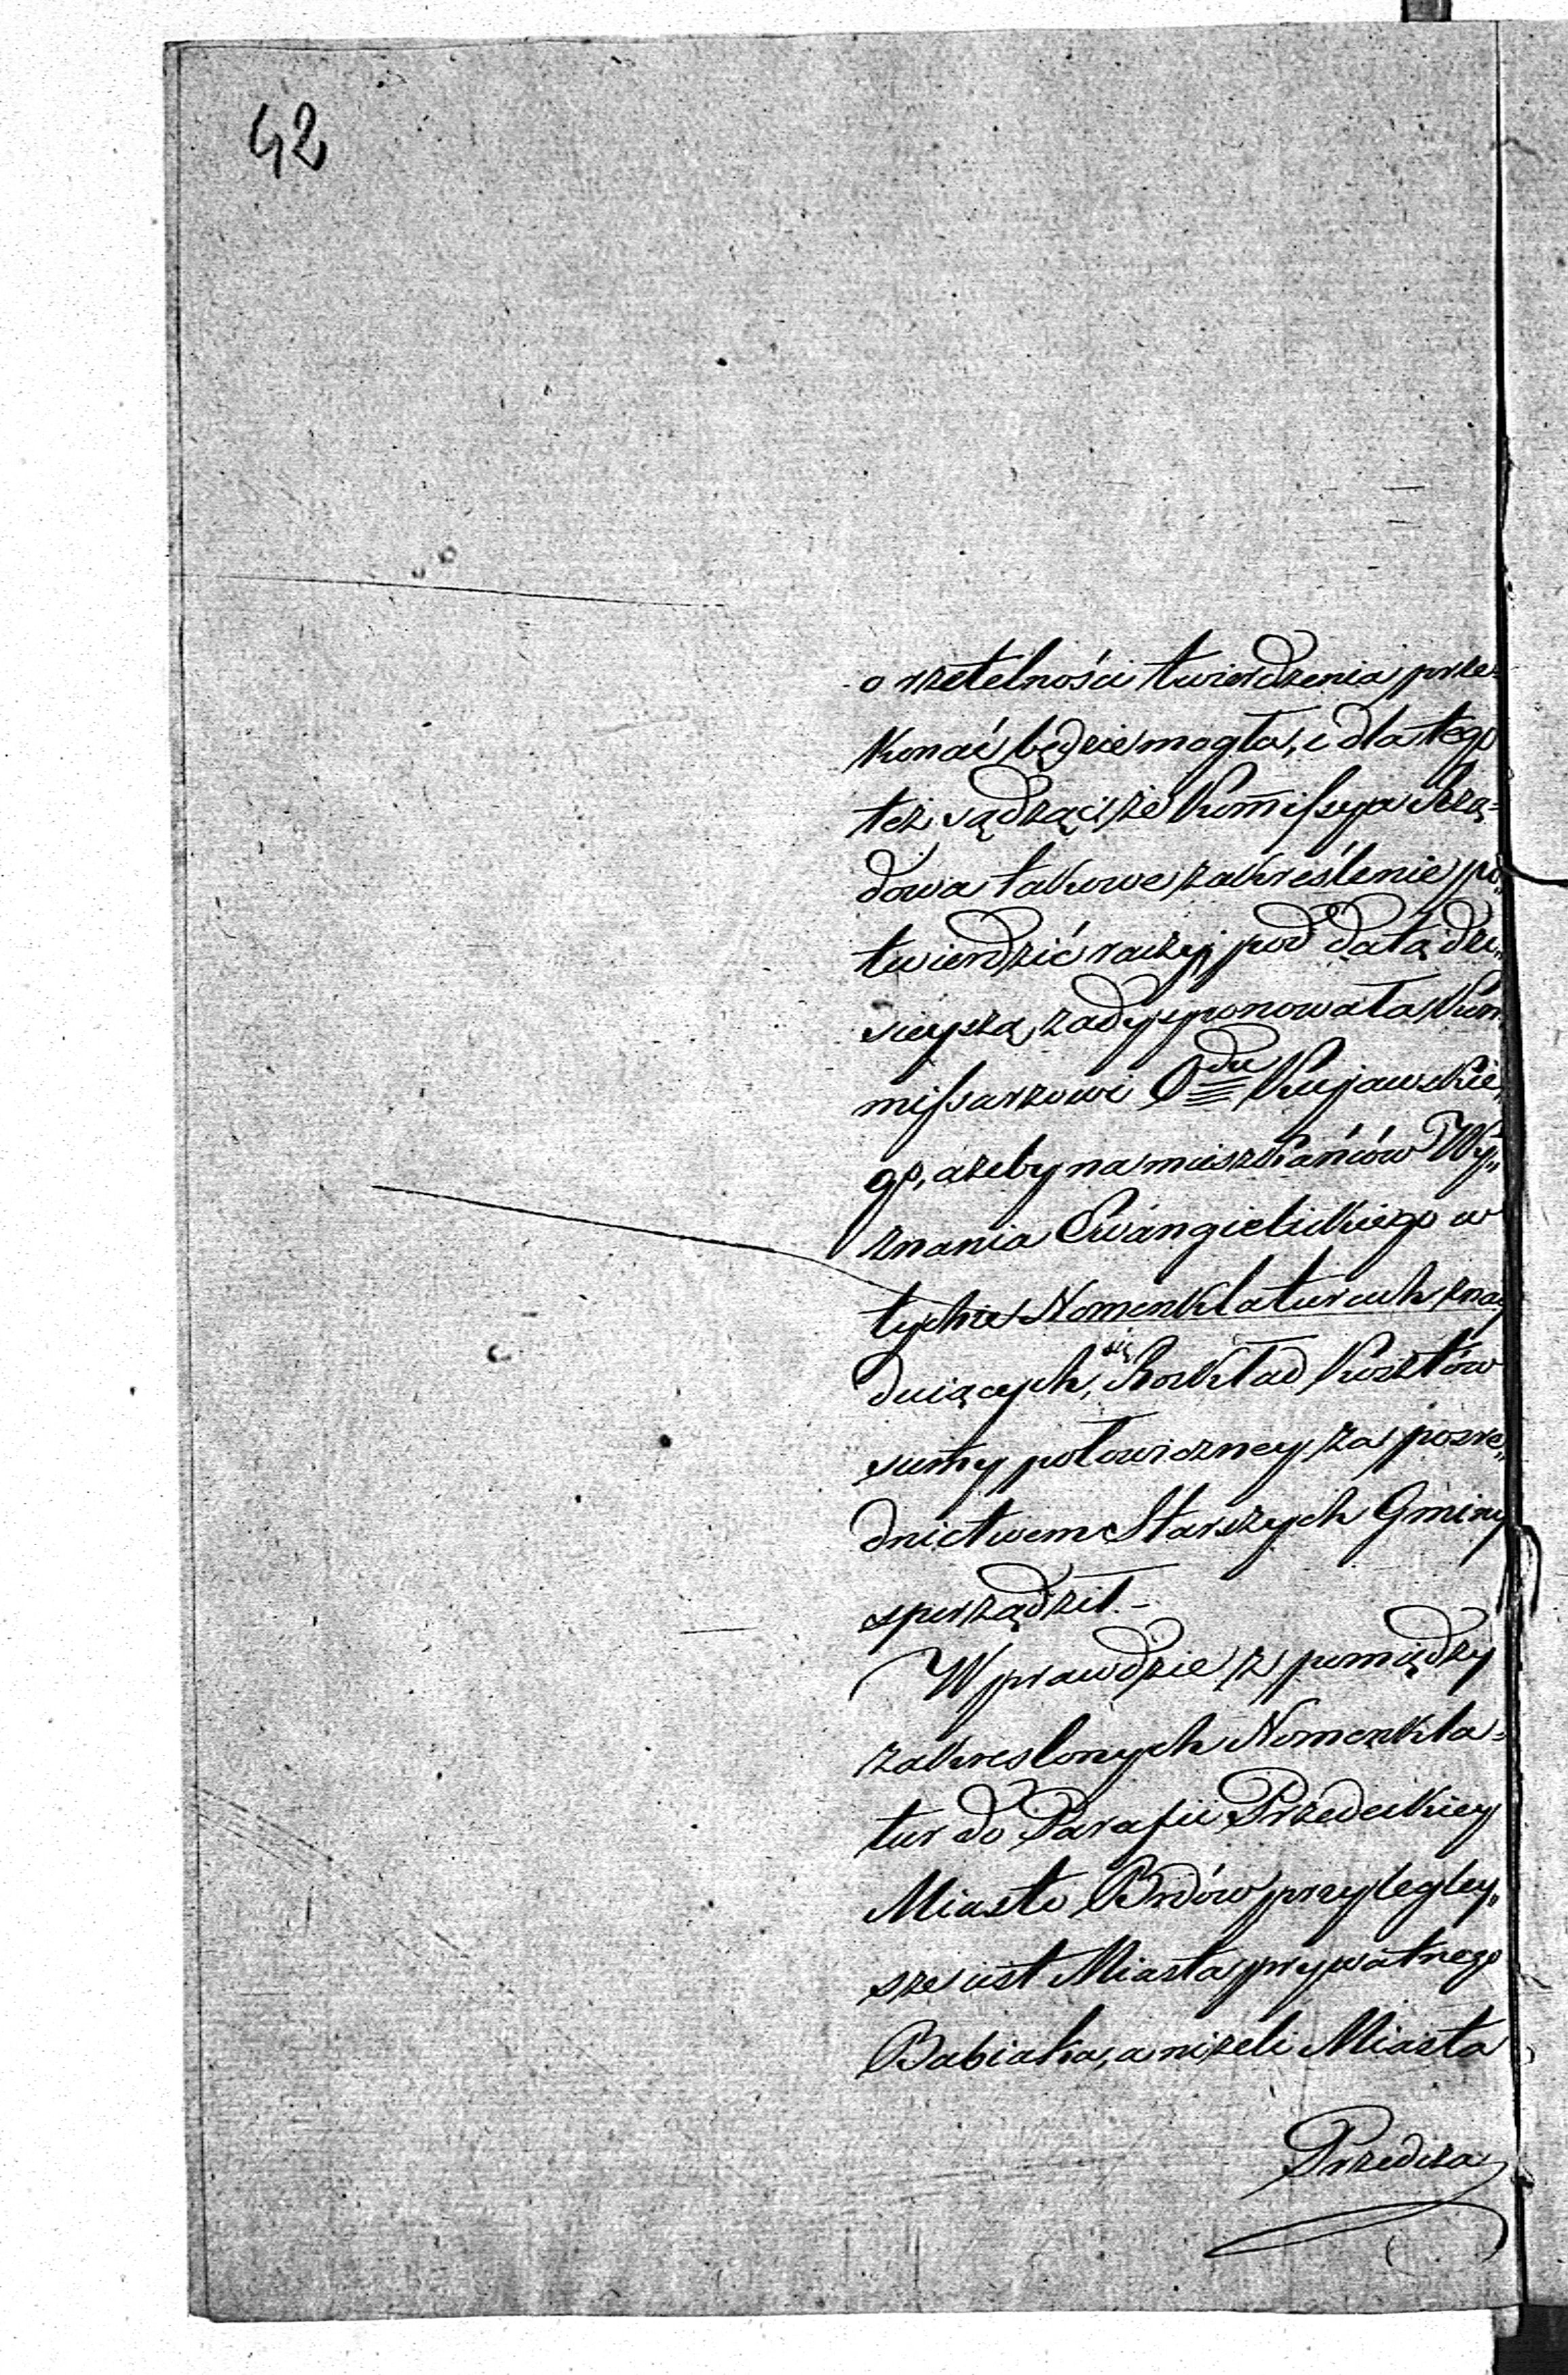 42
o rzetelności twierdzenia prze=
konać będzie mogła, i dla tego
też sądząc, że Kommissya Rzą=
dowa takowe zakreślenie po„
twierdzić raczy, pod datą dzi„
sieyszą zadysponowała Kom
missarzowi Odu Kujawskie„
go, ażeby na mieszkańców Wy„
znania Ewangielickiego w
tychże Nomenklaturach znay
duiących się, Rozkład Kosztów
summy połowiczney za pośre„
dnictwem Starszych Gminy
sporządził.-
Wprawdzie z pomiędzy
zakreślonych Nomenkla=
tur do Parafii Przedeckiey
Miasto Brdów przyległey„
sze iest Miasta prywatnego
Babiaka, aniżeli Miasta
Przedcza